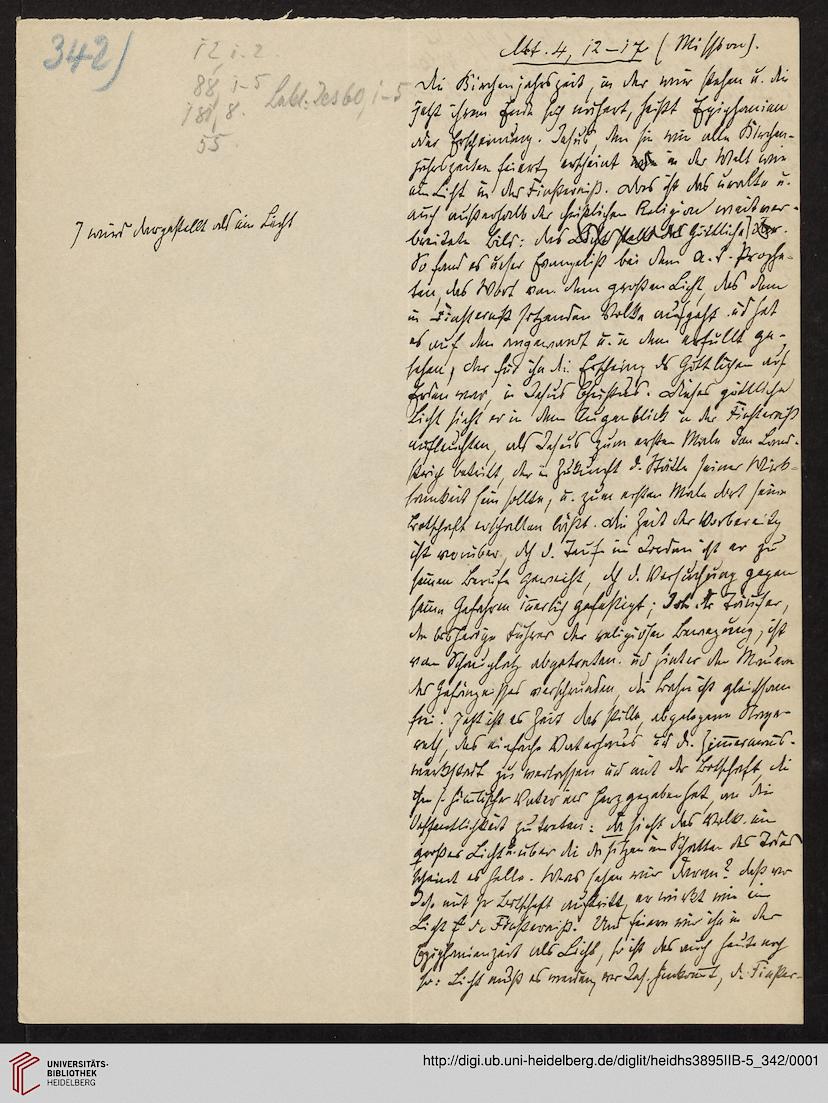 342)
12, 1-2
88, 1-5
181, 8.
55
Jes 60, 1-5
J wird dargestellt als ein Licht
Mt. 4, 12–17 (Mission).
Die Kirchenjahrszeit, in der wir stehen u. die
jetzt ihrem Ende sich nähert, heißt Epiphanien
oder Erscheinung. Jesus, den sie wie alle Kirchen-
jahrszeiten feiert, erscheint in der Welt wie
ein Licht in der Finsterniß. Das ist das uralte u.
auch außerhalb der christlichen Religion weitver-
breitete Bild: das Göttliche
So fand es unser Evangelist bei dem A. T. Prophe-
ten, das Wort von dem großen Licht, das dem
in Finsterniß sitzenden Volke aufgeht und hat
es auf den angewandt u. in dem erfüllt ge-
sehen, der für ihn die Erscheinung des Göttlichen auf
Erden war, in Jesus Christus. Dieses göttliche
Licht sieht er in dem Augenblick in der Finsterniß
aufleuchten, als Jesus zum ersten Male den Land-
strich betritt, der in Zukunft d. Stätte seiner Wirk-
samkeit sein sollte, u. zum ersten Male dort seine
Botschaft erschallen läßt. Die Zeit der Vorbereitg
ist vorüber, dch d. Taufe im Jordan ist er zu
seinem Berufe geweiht, dch d. Versuchung gegen
seine Gefahren innerlich gefestigt; Joh. der Täufer,
der bisherige Führer der religiösen Bewegung, ist
vom Schauplatz abgetreten und hinter den Mauern
des Gefängnisses verschwunden, die Bahn ist gleichsam
frei. Jetzt ist es Zeit das stille, abgelegene Naza-
reth, das einfache Vaterhaus und die Zimmermanns-
werkstatt zu verlassen und mit der Botschaft, die
ihm s. himmlischer Vater ins Herz gegeben hat, an die
Oeffentlichkeit zu treten: da sieht das Volk ein
großes Licht u. über die die sitzen im Schatten des Todes
scheint es helle. Was sehen wir daran? daß wo
Jesus mit sr Botschaft auftritt, er wirkt wie ein
Licht f. die Finsterniß. Und feiern wir ihn in der
Epiphanienzeit als Licht, so ist das auch heute noch
so: Licht muß es werden, wo Jes. hinkommt, d. Finster-
UNIVERSITÄTS-
BIBLIOTHEK
HEIDELBERG
http://digi.ub.uni-heidelberg.de/diglit/heidhs3895IIB-5_342/0001